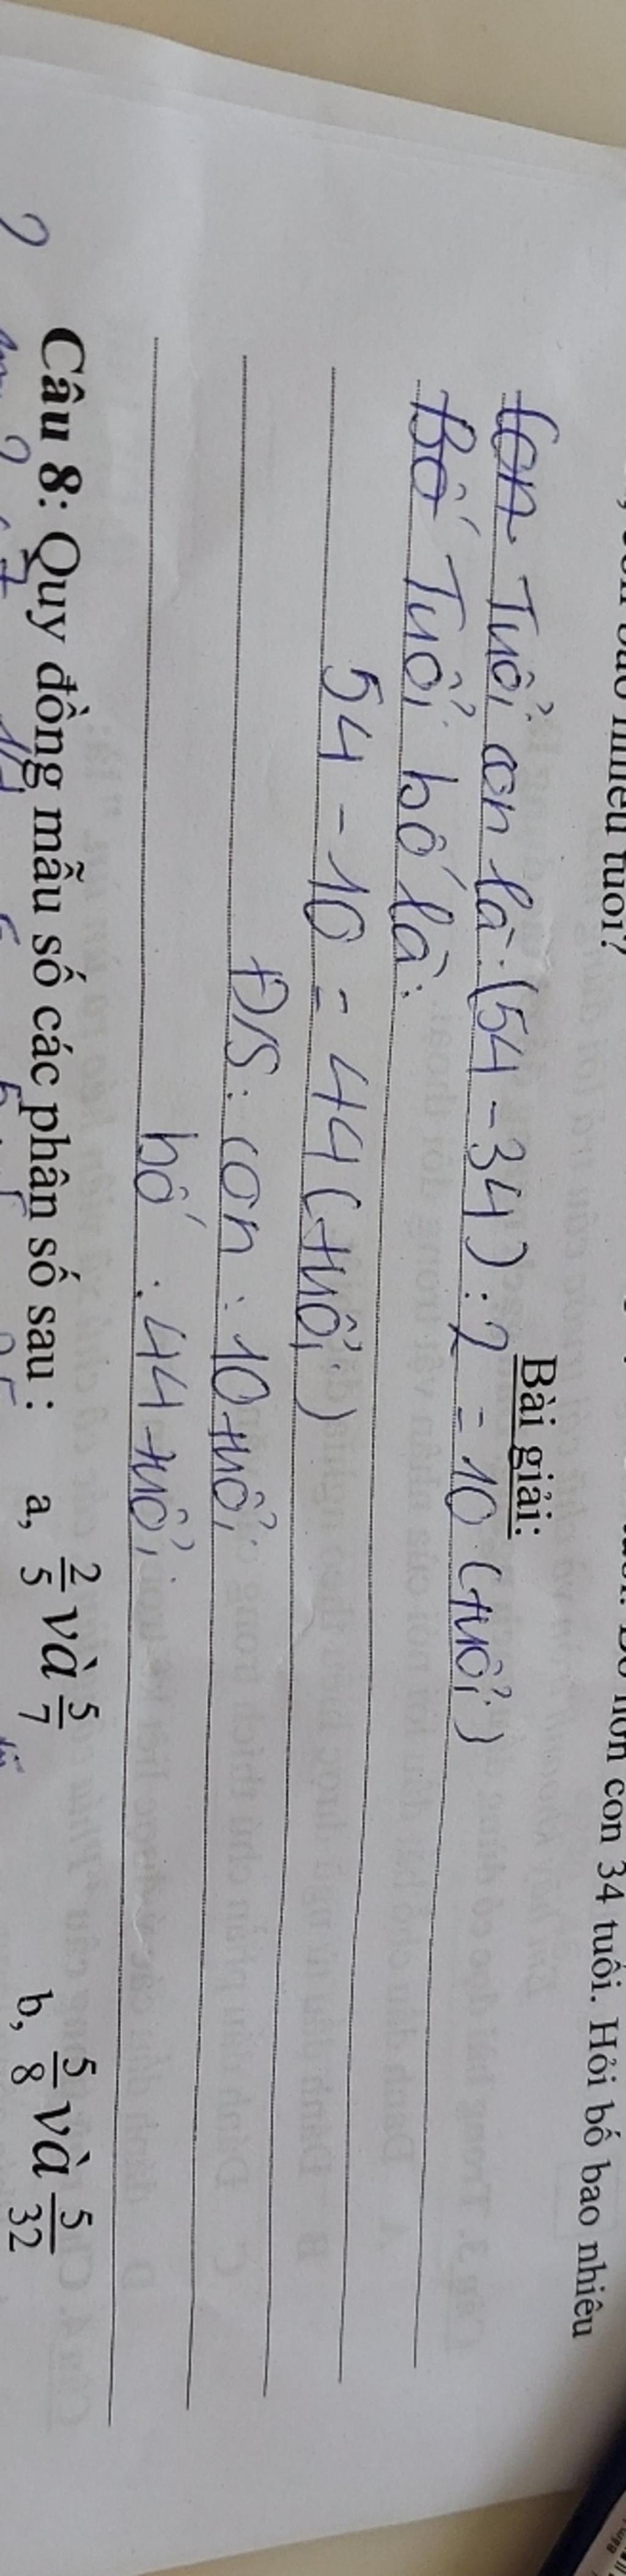 hơn con 34 tuổi. Hỏi bố bao nhiêu
nhiêu tuổi?
Bài giải:
Tuổi con là: (54 - 34) : 2 = 10 (tuổi)
Bố Tuổi bố là:
54 - 10 = 44 (tuổi)
Đ/S: con: 10 tuổi
bố: 44 tuổi
Câu 8: Quy đồng mẫu số các phân số sau: a, 2/5 và 5/7 b, 5/8 và 5/32